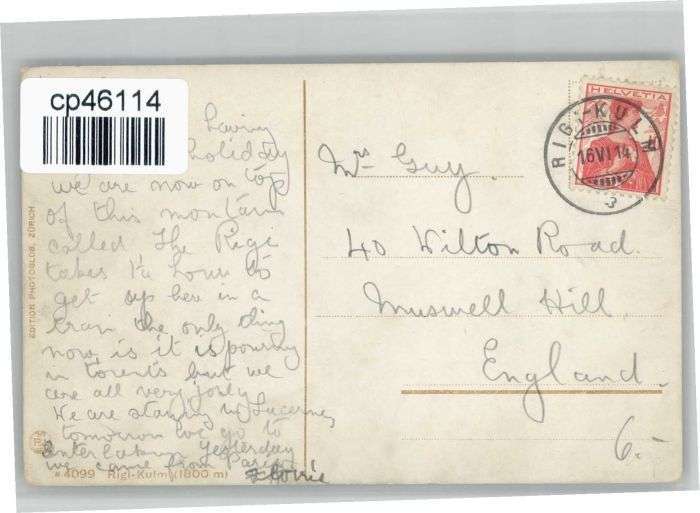 cp46114
having
holiday
we are now on top
of this mountain
called The Rigi
takes 1¼ hour to
get up here in a
train the only thing
now is it is pouring
in torents but we
are all very jolly
We are staying in Lucerne,
tomorrow we go to
Interlaken Yesterday
we came from Paris
Mrs Guy.
40 Wilton Road.
Muswell Hill.
England.
6.-
HELVETIA
RIGI-KULM
16 VI 14
3
EDITION PHOTOGLOB, ZÜRICH
4099 Rigi-Kulm (1800 m)